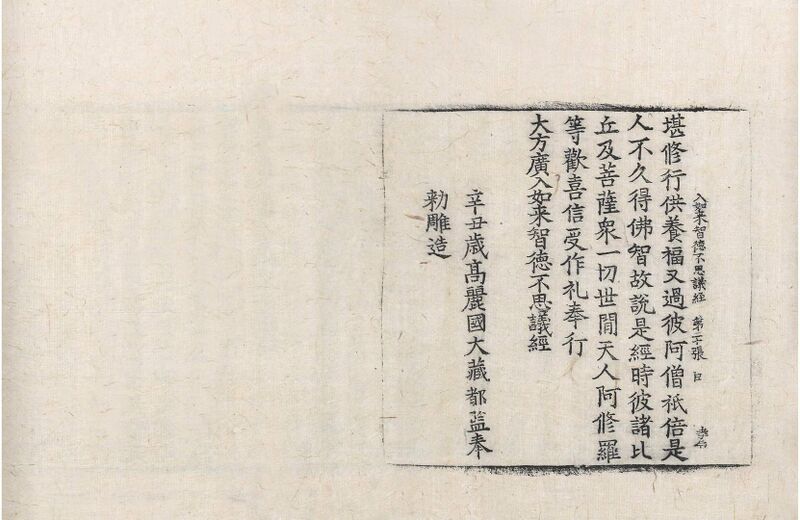 入如来智德不思議經 第二十張
堪修行供養福又過彼阿僧祇倍是
人不久得佛智故說是經時彼諸比
丘及菩薩衆一切世間天人阿修羅
等歡喜信受作礼奉行
大方廣入如来智德不思議經
辛丑歳高麗國大藏都監奉
勑雕造